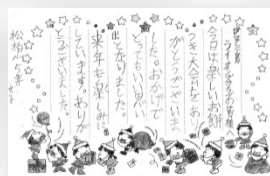 ライオンズクラブの皆様へ
今日は楽しいお餅
つき大会をあり
がとうございまし
た。おかげで
とってもいい思い
出となりました。
来年も楽しみに
しています。ありが
とうございました。